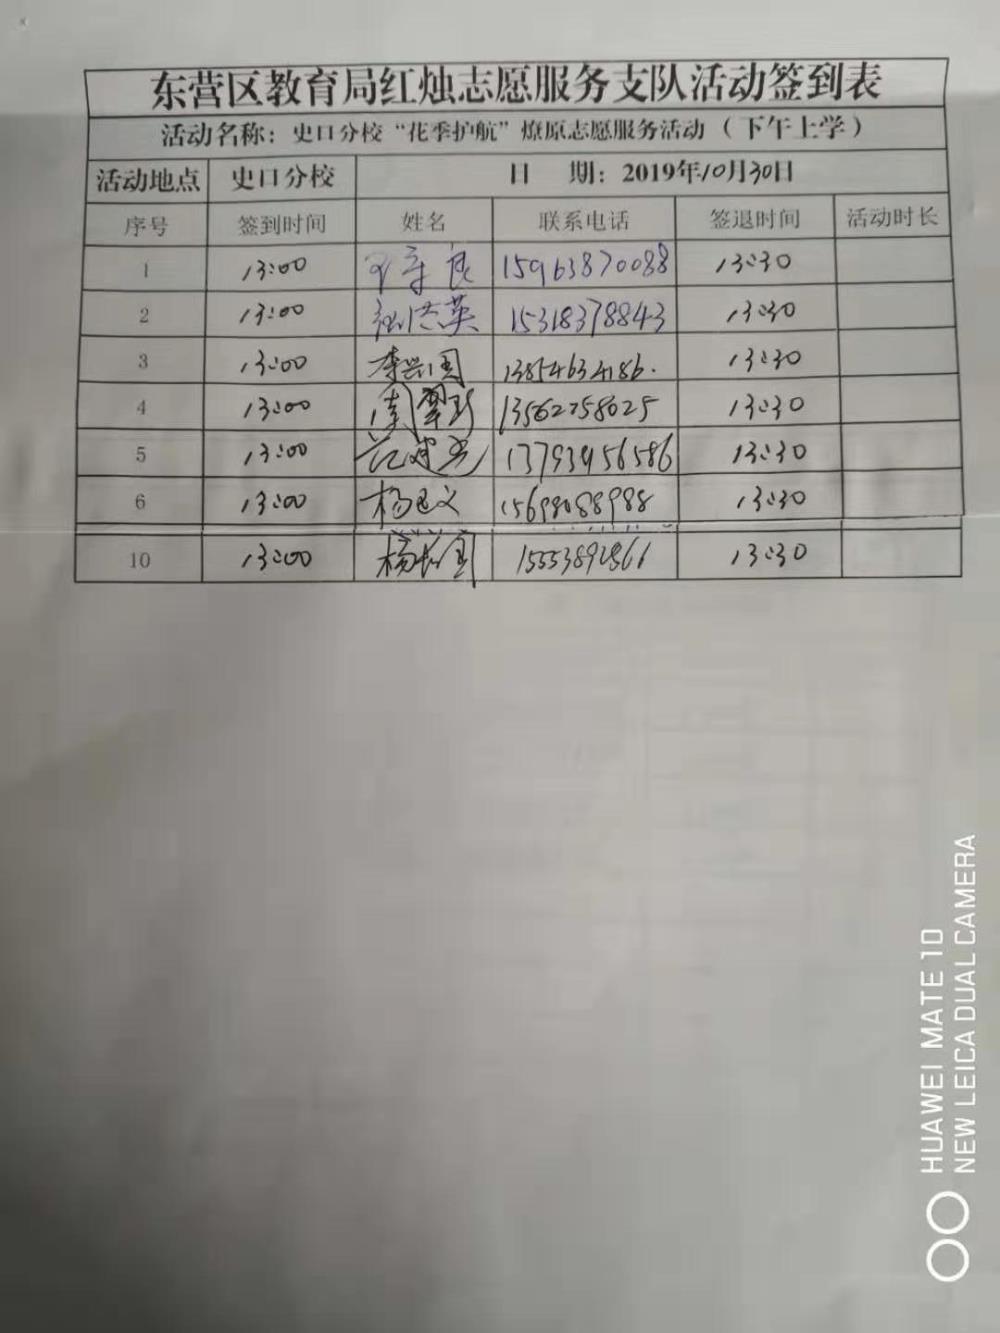 东营区教育局红烛志愿服务支队活动签到表
活动名称：史口分校“花季护航”燎原志愿服务活动（下午上学）
活动地点 史口分校 日 期：2019年10月30日
序号 签到时间 姓名 联系电话 签退时间 活动时长
1 13:00 良 15963870088 13:30
2 13:00 英 15318378843 13:30
3 13:00 李兴国 13854634186. 13:30
4 13:00 周翠珍 13562758025 13:30
5 13:00 范建光 13793956586 13:30
6 13:00 杨文 15698088988 13:30
10 13:00 杨长国 13:30
HUAWEI MATE 10
NEW LEICA DUAL CAMERA